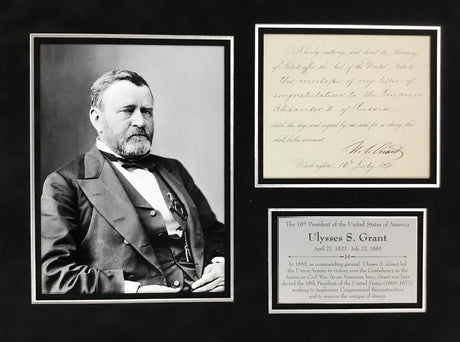 I hereby authorize and direct the Secretary
of State to affix the Seal of the United States to
the envelope of my letter of
congratulation to the Emperor
Alexander II of Russia
dated this day and signed by me and for so doing this
shall be his warrant
U. S. Grant
Washington 10th July 1871
The 18th President of the United States of America
Ulysses S. Grant
April 27, 1822 - July 23, 1885
In 1865, as commanding general, Ulysses S. Grant led
the Union Armies to victory over the Confederacy in the
American Civil War. As an American hero, Grant was later
elected the 18th President of the United States (1869-1877)
working to implement Congressional Reconstruction
and to remove the vestiges of slavery.